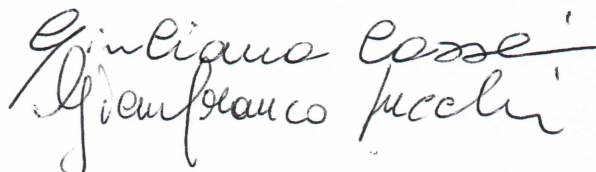 Giuliana Cassé
Gianfranco Zucchi